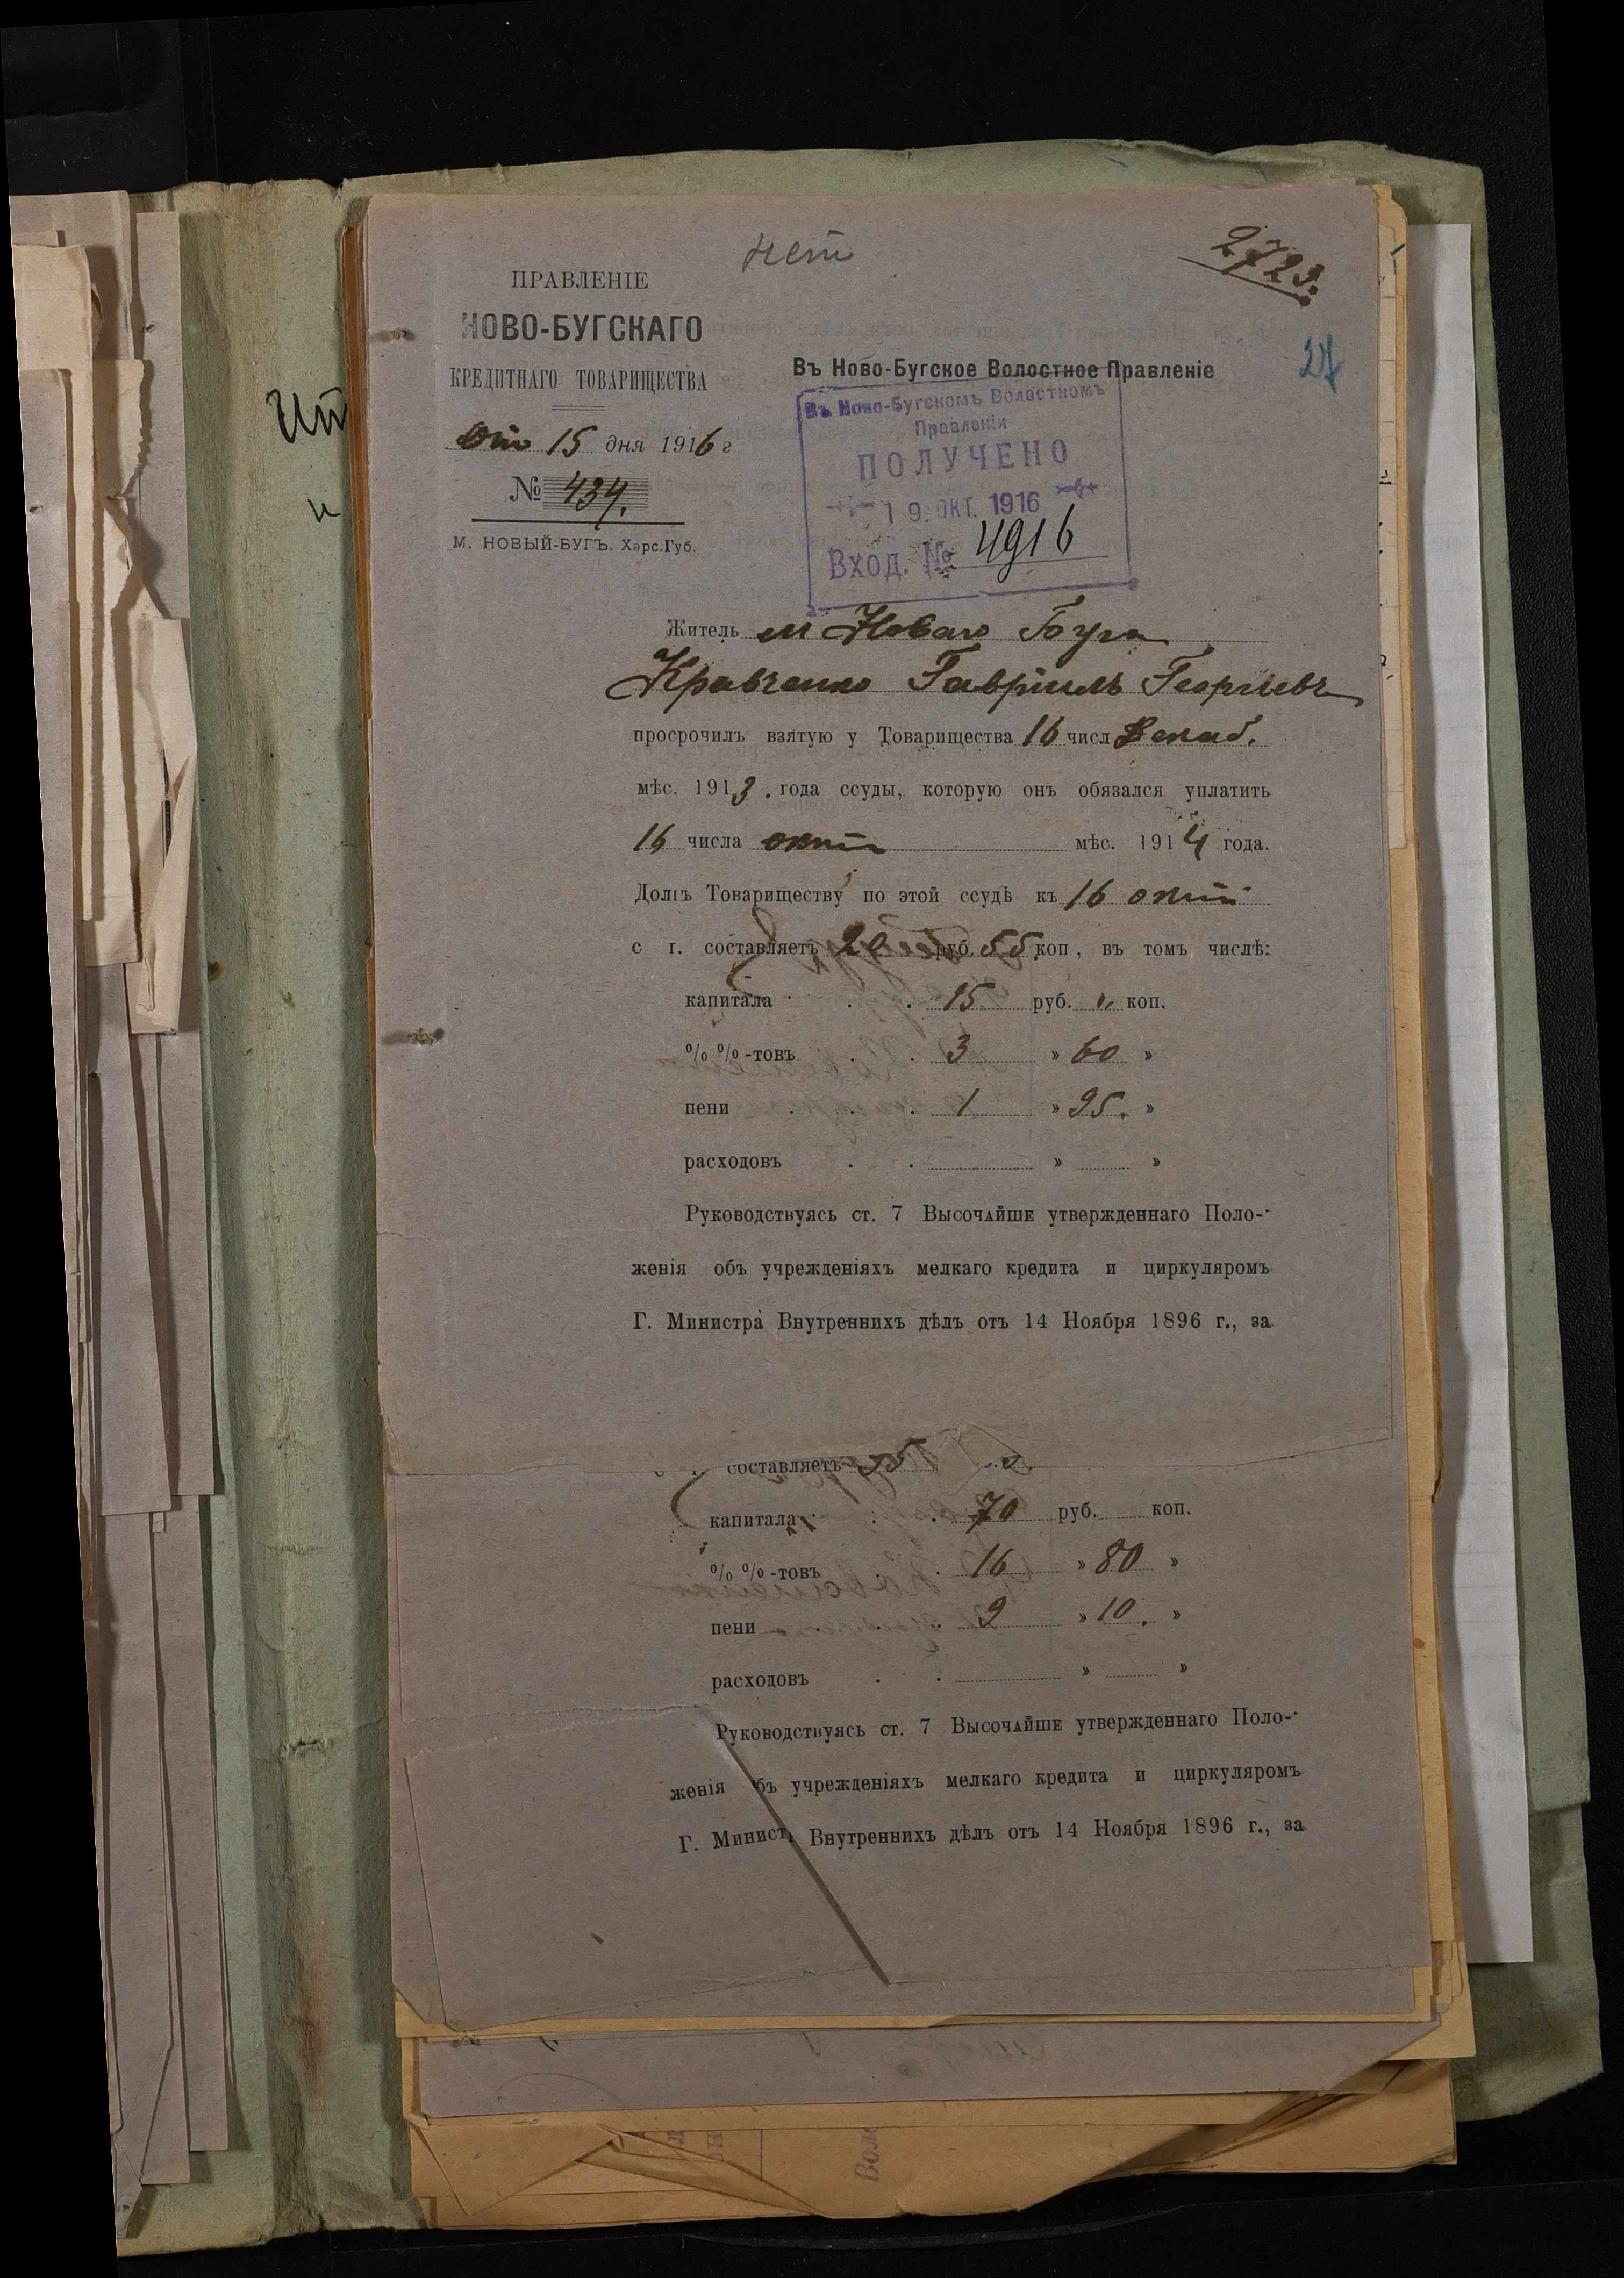 нет
2723.
ПРАВЛЕНІЕ
НОВО-БУГСКАГО
КРЕДИТНАГО ТОВАРИЩЕСТВА
Окт 15 дня 1916 г
№ 434.
М. НОВЫЙ-БУГЪ. Херс. Губ.
27
Въ Ново-Бугское Волостное Правленіе
Въ Ново-Бугскомъ Волостномъ
Правленіи
ПОЛУЧЕНО
19. ОКТ. 1916
Вход. № 4916
Житель м Новаго Буга
Кравченко Гавріилъ Георгіевъ
просрочилъ взятую у Товарищества 16 числ Декаб.
мѣс. 1913. года ссуды, которую онъ обязался уплатить
16 числа окт мѣс. 1914 года.
Долгъ Товариществу по этой ссудѣ къ 16 окт
с г. составляетъ 20 руб. 55 коп, въ томъ числѣ:
капитала . . 15 руб. „ коп.
% %-товъ . . 3 » 60 »
пени . . . 1 » 95. »
расходовъ . . » »
Руководствуясь ст. 7 Высочайше утвержденнаго Поло-
женія объ учрежденіяхъ мелкаго кредита и циркуляромъ
Г. Министра Внутреннихъ дѣлъ отъ 14 Ноября 1896 г., за
составляетъ
капитала . . 70 руб. коп.
% %-товъ . . 16 » 80 »
пени . . . 9 » 10. »
расходовъ . . » »
Руководствуясь ст. 7 Высочайше утвержденнаго Поло-
женія бъ учрежденіяхъ мелкаго кредита и циркуляромъ
Г. Минист Внутреннихъ дѣлъ отъ 14 Ноября 1896 г., за